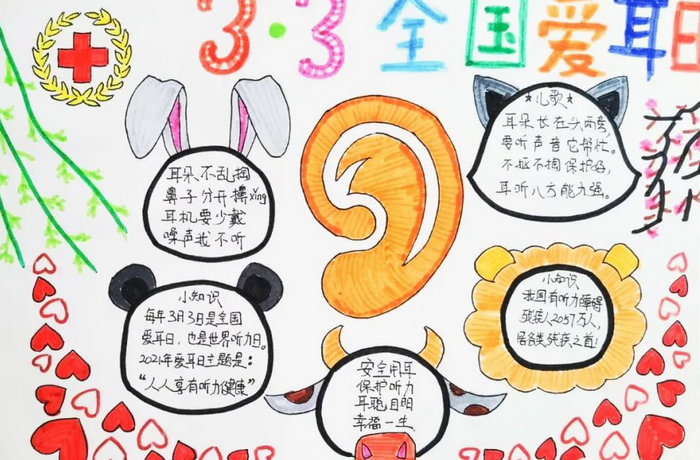 3·3全国爱耳日
耳朵不乱掏
鼻子分开擤xǐng
耳机要少戴
噪声我不听
★儿歌★
耳朵长在头两旁,
要听声音它帮忙。
不抠不掏保护好,
耳听八方能力强。
小知识
每年3月3日是全国
爱耳日,也是世界听力日。
2021年爱耳日主题是:
“人人享有听力健康”
安全用耳
保护听力
耳聪目明
幸福一生
小知识
我国有听力障碍
残疾人2057万人,
居各类残疾之首!